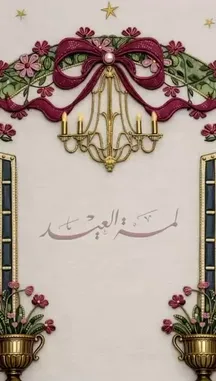 لمة العيد